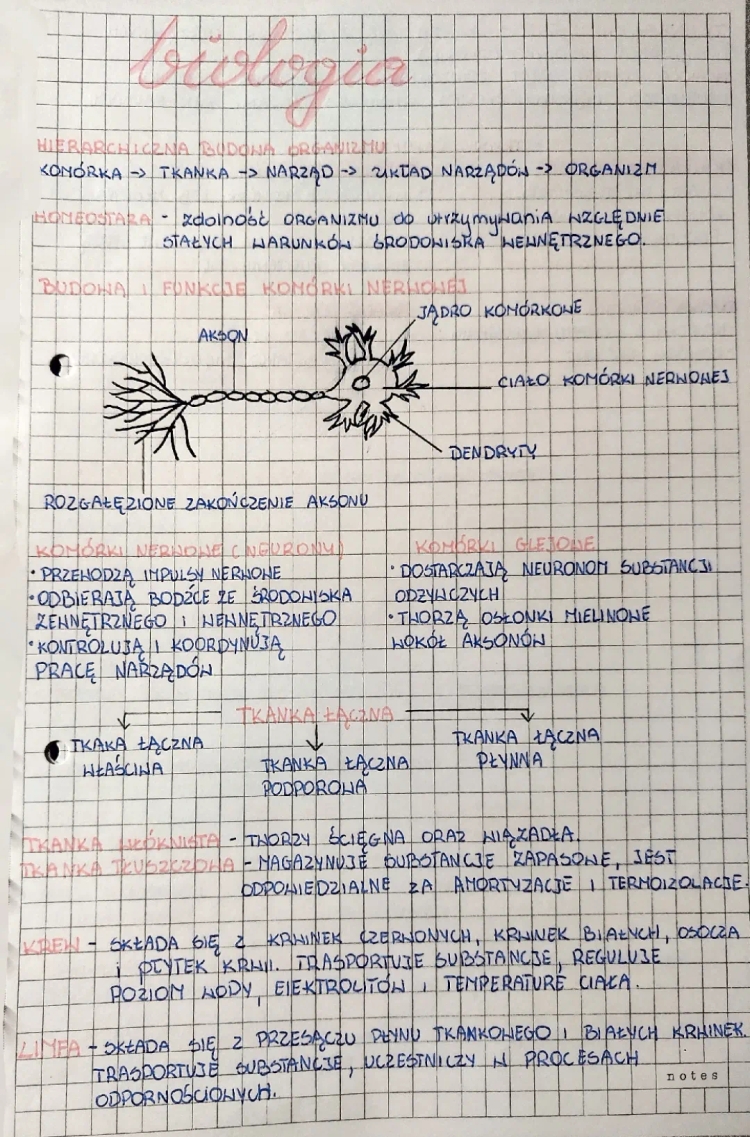 biologia
HIERARCHICZNA BUDOWA ORGANIZMU
KOMÓRKA -> TKANKA -> NARZĄD -> UKŁAD NARZĄDÓW -> ORGANIZM
HOMEOSTAZA - zdolność ORGANIZMU do utrzymywania WZGLĘDNIE
STAŁYCH WARUNKÓW ŚRODOWISKA WEWNĘTRZNEGO.
BUDOWA I FUNKCJE KOMÓRKI NERWOWEJ
JĄDRO KOMÓRKOWE
AKSON
CIAŁO KOMÓRKI NERWOWEJ
DENDRYTY
ROZGAŁĘZIONE ZAKOŃCZENIE AKSONU
KOMÓRKI NERWOWE (NEURONY)
• PRZEWODZĄ IMPULSY NERWOWE
• ODBIERAJĄ BODŹCE ZE ŚRODOWISKA
ZEWNĘTRZNEGO I WEWNĘTRZNEGO
• KONTROLUJĄ I KOORDYNUJĄ
PRACĘ NARZĄDÓW
KOMÓRKI GLEJOWE
• DOSTARCZAJĄ NEURONOM SUBSTANCJI
ODŻYWCZYCH
• TWORZĄ OSŁONKI MIELINOWE
WOKÓŁ AKSONÓW
TKANKA ŁĄCZNA
TKAKA ŁĄCZNA
WŁAŚCIWA
TKANKA ŁĄCZNA
PODPOROWA
TKANKA ŁĄCZNA
PŁYNNA
TKANKA WŁÓKNISTA - TWORZY ŚCIĘGNA ORAZ WIĄZADŁA.
TKANKA TŁUSZCZOWA - MAGAZYNUJE SUBSTANCJE ZAPASOWE, JEST
ODPOWIEDZIALNE ZA AMORTYZACJE I TERMOIZOLACJE.
KREW - SKŁADA SIĘ Z KRWINEK CZERWONYCH, KRWINEK BIAŁYCH, OSOCZA
I PŁYTEK KRWII. TRASPORTUJE SUBSTANCJE, REGULUJE
POZIOM WODY, ELEKTROLITÓW I TEMPERATURĘ CIAŁA.
LIMFA - SKŁADA SIĘ Z PRZESĄCZU PŁYNU TKANKOWEGO I BIAŁYCH KRWINEK.
TRASPORTUJE SUBSTANCJE, UCZESTNICZY W PROCESACH
ODPORNOŚCIOWYCH.
notes